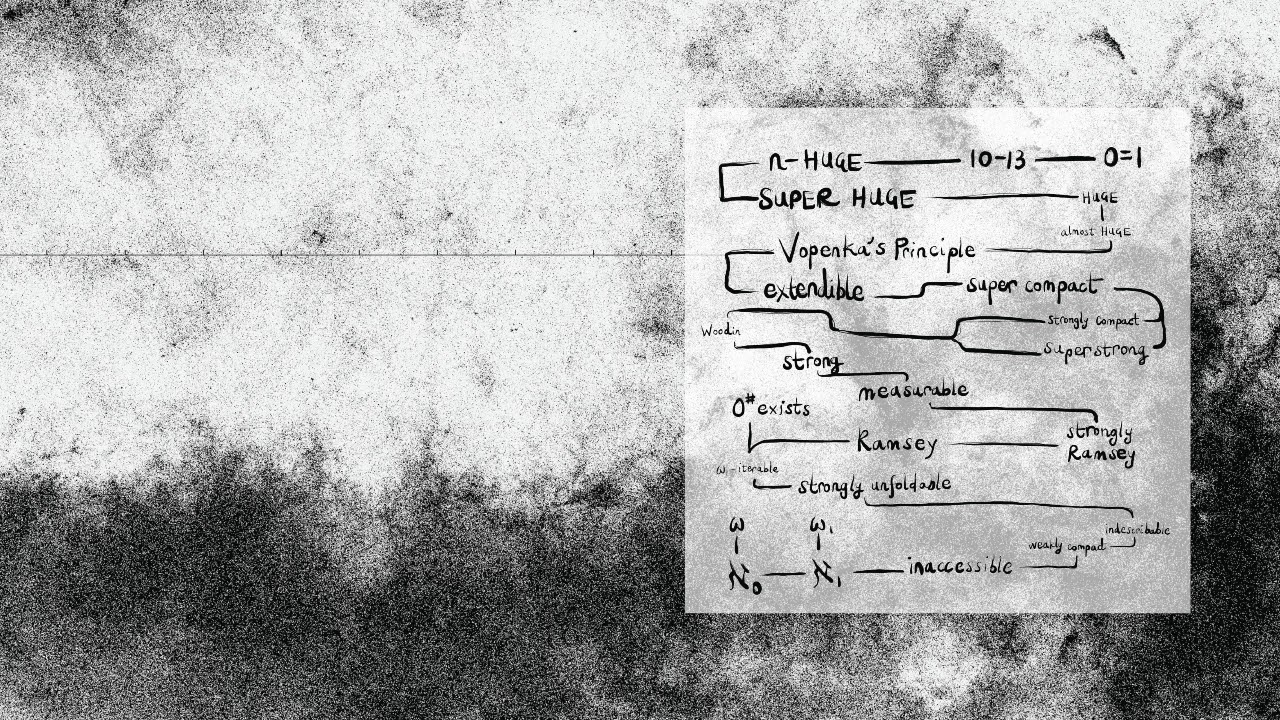 n-HUGE 10-13 0=1
SUPER HUGE HUGE
almost HUGE
Vopenka's Principle
extendible super compact
strongly compact
Woodin
superstrong
strong
measurable
0# exists
strongly
Ramsey Ramsey
ω-iterable
strongly unfoldable
ω ω₁
indescribable
weakly compact
inaccessible
ℵ₀ ℵ₁